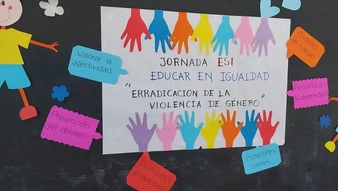 JORNADA ESI
EDUCAR EN IGUALDAD
"ERRADICACION DE LA
VIOLENCIA DE GÉNERO"
Valorar la
afectividad
Prevención
del abuso
Relaciones
sanas